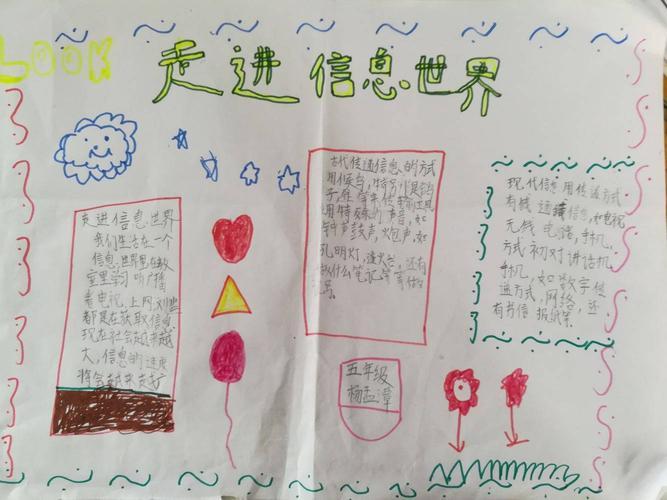 LOOK
走进信息世界
走进信息世界
我们生活在一个
信息世界里在教
室里学习 听广播
看电视，上网，浏览
都是在获取信息
现在社会越来越
大，信息的速度
将会越来越
古代传递信息的方式
用特殊的声音，如
钟声鼓声，火炮声，如
孔明灯，烽火台，还有
做什么笔记等等做的
记号。
现代信息用传递方式
有线 信息，如电视
无线电路，手机，
方式初对讲机
手机，如数字传
递方式，网络，还
有书信 报纸等
五年级
杨孟漳